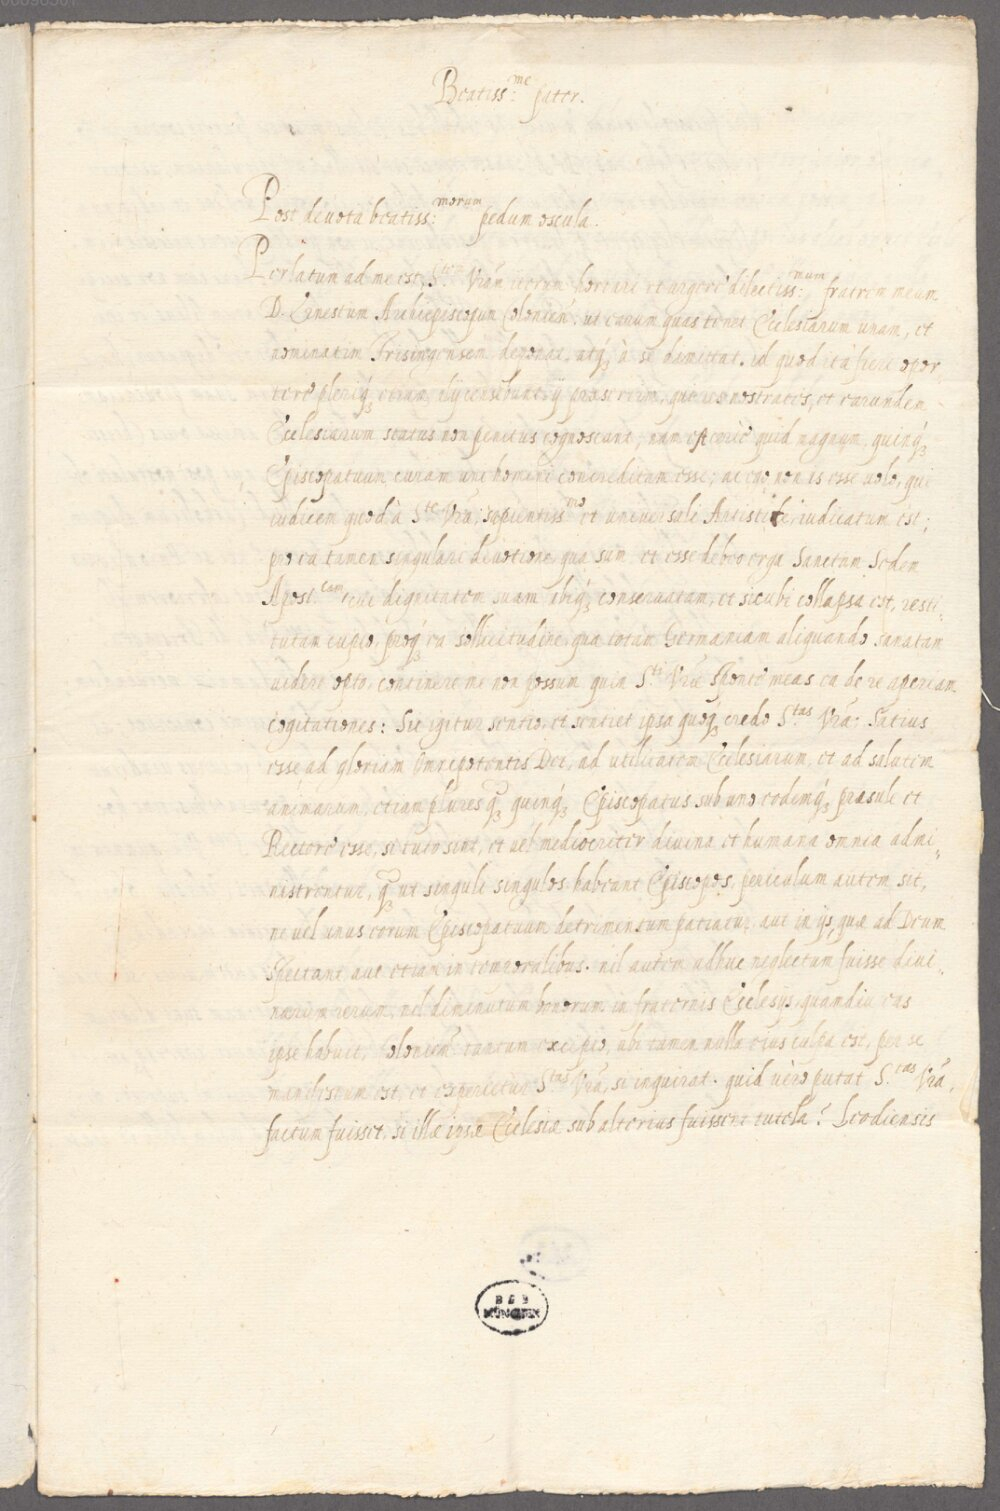 Beatiss:me pater.
Post deuota beatiss:morum pedum oscula.
Perlatum ad me est, S.tem Vrām iterum hortari et urgere dilectiss:mum fratrem meum
D. Ernestum Archiepiscopum Colonien. ut earum quas tenet Ecclesiarum unam, et
nominatim Frisingensem deponat, atq3 à se dimittat. id quod ità fieri opor
tere pleriq3 etiam alij censebunt, ij praesertim, qui res nostrates, et earundem
Ecclesiarum status non penitus cognoscant, nam esse quid magnum, quinq3
Episcopatuum curam uni homini concreditam esse; ac ego non is esse uolo, qui
iudicem quod à S.te Vrā, sapientiss.mo et uniuersali Antistite iudicatum est;
pro ea tamen singulari deuotione, qua sum et esse debeo erga Sanctam Sedem
Apost.cam cui dignitatem suam ubiq3 conseruatam, et sicubi collapsa est, resti„
tutam cupio, proq3 ea sollicitudine, qua totam Germaniam aliquando sanatam
uidere opto, continere me non possum quin S.ti Vrae sponte meas ea de re aperiam
cogitationes: Sic igitur sentio, et sentiet ipsa quoq3 credo S.tas Vrā; Satius
esse ad gloriam Omnipotentis Dei, ad utilitatem Ecclesiarum, et ad salutem
animarum, etiam plures q3 quinq3 Episcopatus sub uno eodemq3 praesule et
Rectore esse, si tuto sint, et uel mediocriter diuina et humana omnia admi„
nistrentur, q3 ut singuli singulos habeant Episcopos, periculum autem sit,
ne uel unus eorum Episcopatuum detrimentum patiatur, aut in ijs, quae ad Deum
spectant, aut etiam in temporalibus. nil autem adhuc neglectum fuisse diui„
narum rerum, nil diminutum bonorum in fraternis Ecclesijs, quamdiu eas
ipse habuit, Coloniens: tantum excipio, ubi tamen nulla eius culpa est, per se
manifestum est, et experietur S.tas Vrā, si inquirat. quid uèro putat S.tas Vrā,
factum fuisset, si illae ipsae Ecclesiae sub alterius fuissent tutela? Leodiensis
BSB
MÜNCHEN